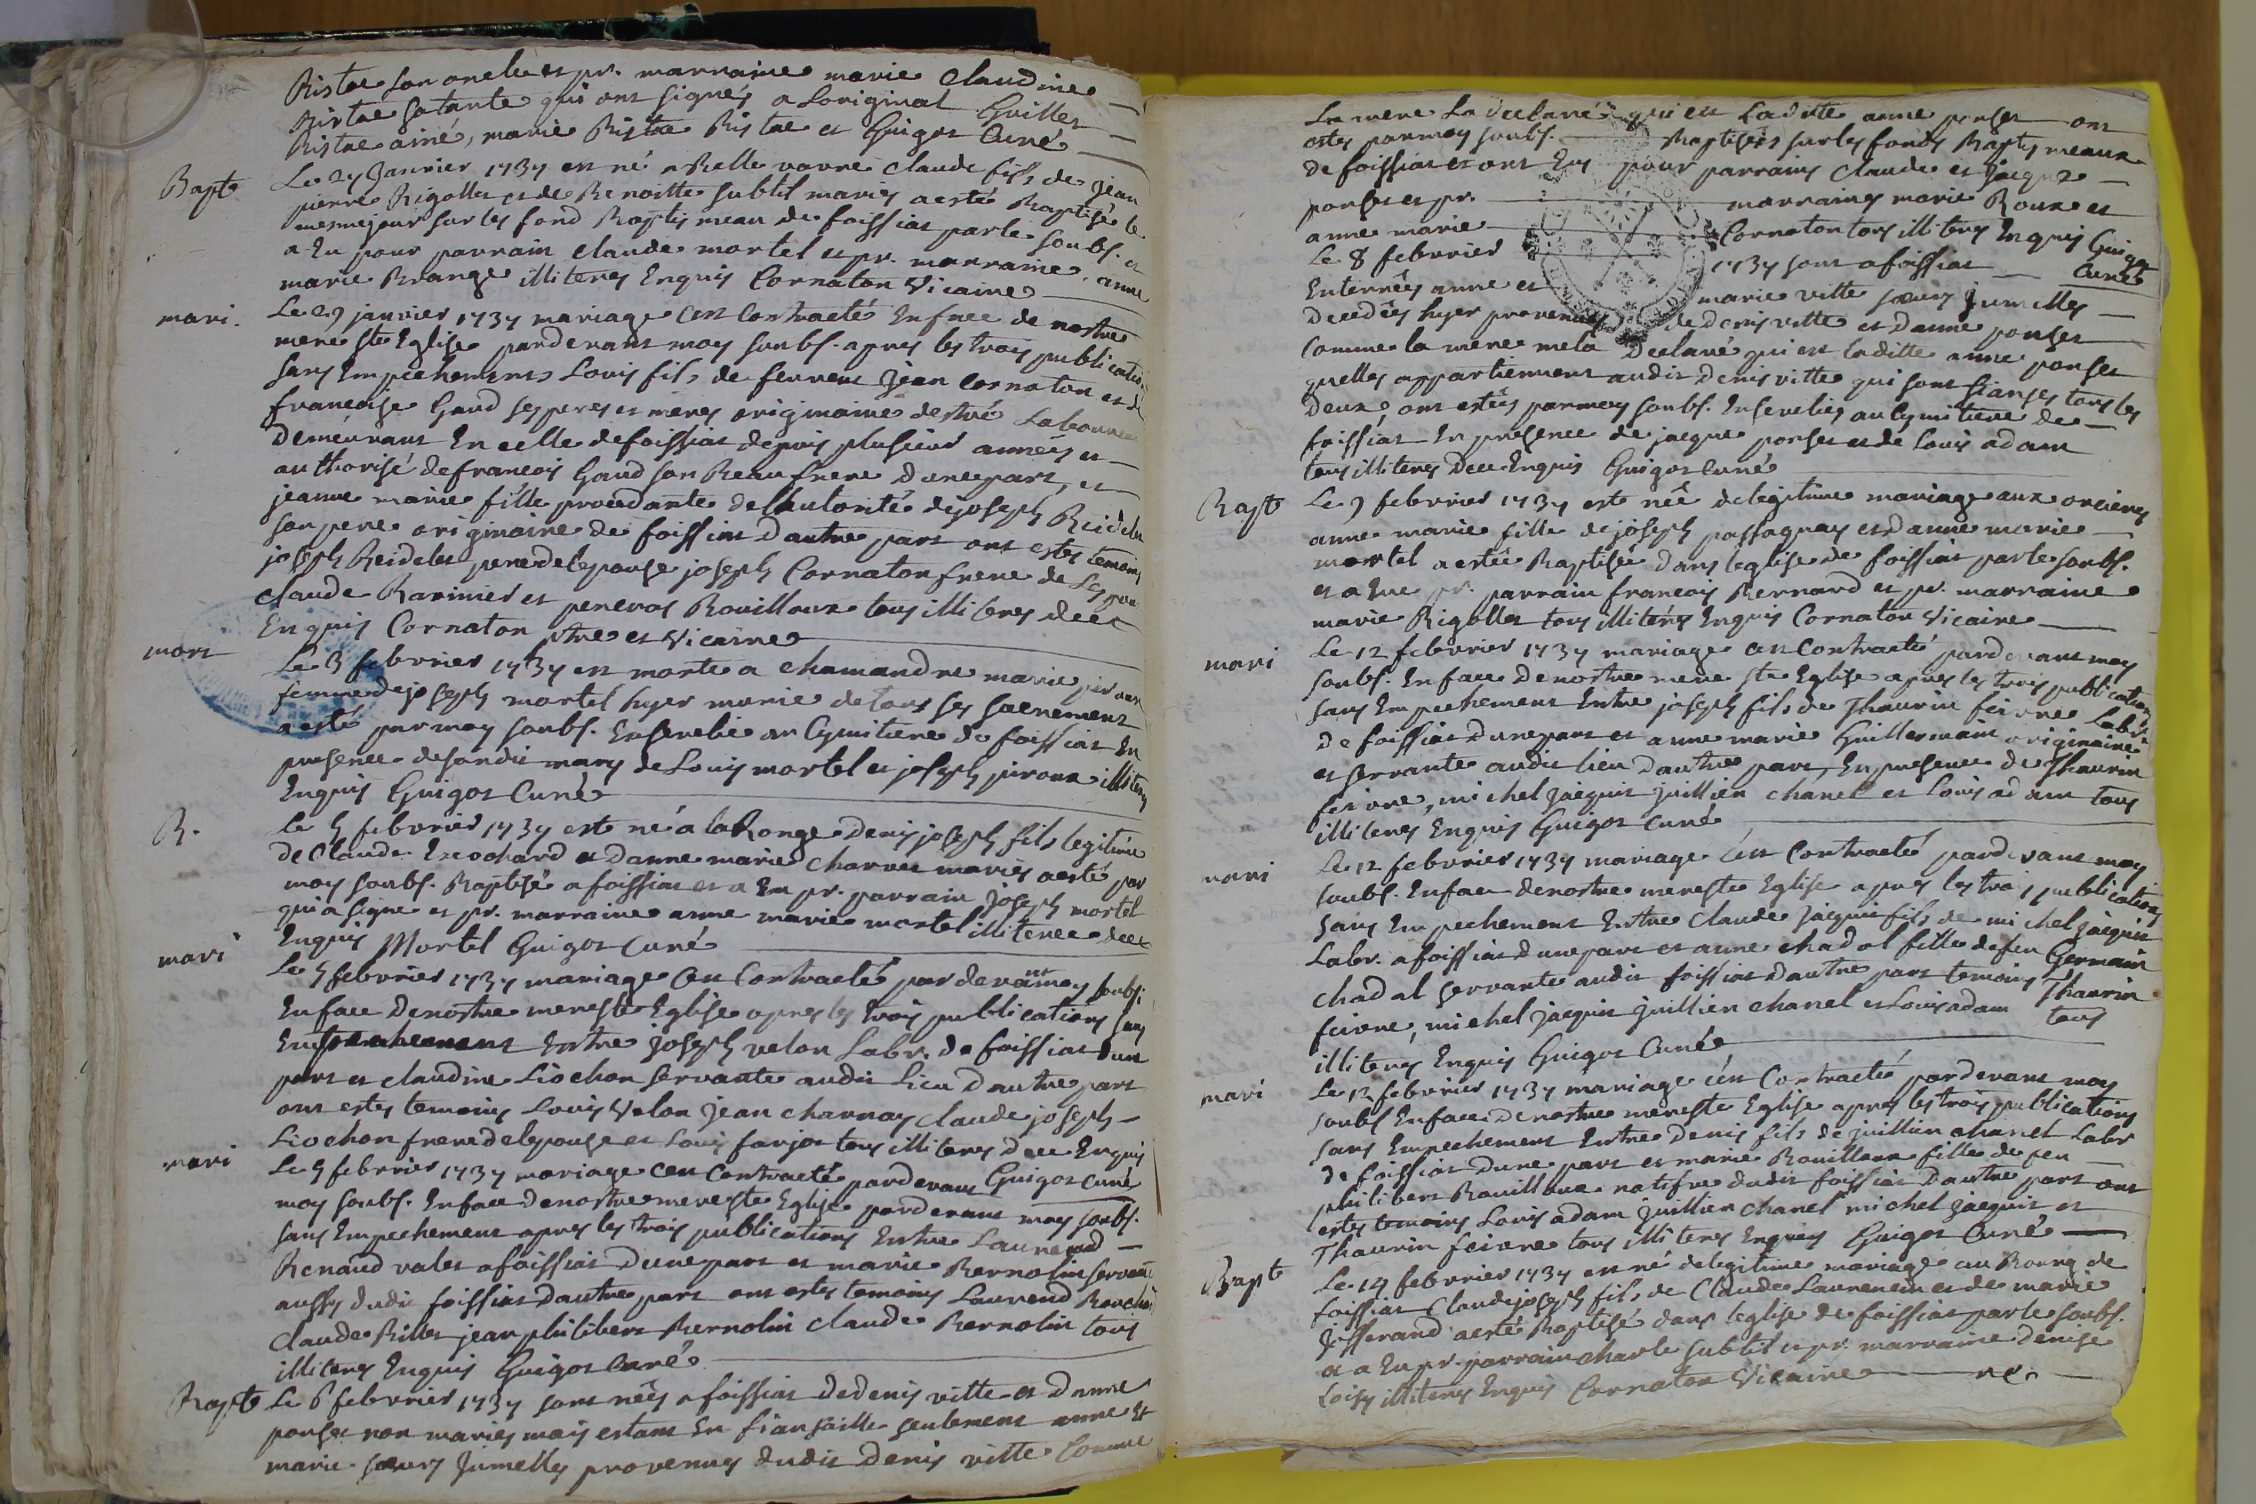 Ristae son oncle et pr. marraine marie Claudine
Ristae sa tante qui ont signés a Loriginal Guillet
Ristae ainé, marie Ristae Ristae et Guigot Curé
Bapt Le 27 Janvier 1737 est né a Belle vavre Claude fils de jean
pierre Rigollet et de Benoitte subtil mariés a esté Baptisé le
mesme jour sur les fond Baptismeau de foissiat par le soubs. et
a Eu pour parrain Claude mortel et pr. marraine anne
marie Brange illiterés Enquis Cornaton Vicaire
mari. Le 29 janvier 1737 mariage c'est Contracté En face de nostre
mere ste Eglise pardevant moy soubs. apres les trois publications
sans Empechements Louis fils de feu jean Cornaton et de
francoise Gaud ses peres et meres originaire
demeurant En celle de foissiat depuis plusieur années et
authorisé de francois Gaud son Beaufrere d'une part, et
jeanne marie fille procedante de l'autorité de joseph Reidelet
son pere originaire de foissiat d'autre part ont estés temoins
joseph Reidelet pere de lepouse joseph Cornaton frere de
claude Ravinier et Rouilloux tous illiterés de ce
Enquis Cornaton ptre et Vicaire
mort Le 3 febvrier 1737 est morte a chamandre marie
femme de joseph mortel hyer munie de tous ses sacrement
a esté par moy soubs. Ensevelie au Cymitiere de foissiat En
presence de son dit mary de Louis mortel et joseph piroux illiterés
Enquis Guigot Curé
B. Le 5 febvrier 1737 est né a la Ronge denis joseph fils legitime
de Claude Escochard et d'anne marie Charvet mariés a esté par
moy soubs. Baptisé a foissiat et a Eu pr. parrain joseph mortel
qui a signe et pr. marraine anne marie mortel illiteree de ce
Enquis Mortel Guigot Curé
mari Le 5 febvrier 1737 mariage c'est Contracté par devant moy soubs.
En face de nostre mere ste Eglise apres les trois publications sans
Empechement Entre joseph velon Labr. de foissiat d'une
part et claudine Liochon servante audit Lieu d'autre part
ont estés temoins Louis Velon jean charnay claude joseph
Liochon frere de lepouse et Louis farjot tous illiterés de ce Enquis
Guigot Curé
mari Le 5 febvrier 1737 mariage c'est Contracté pardevant
moy soubs. En face de nostre mere ste Eglise pardevant moy soubs.
sans Empechement apres les trois publications Entre Laurend
Renaud valet a foissiat d'une part et marie Bernolin servante
aussy dudit foissiat d'autre part ont estés temoins Laurend
claude Billet jean philibert Bernolin claude Bernolin tous
illiterés Enquis Guigot Curé
Bapt Le 6 febvrier 1737 sont nées a foissiat de denis vitte et d'anne
ponset non mariés mais estant En fiansaille seulement anne et
marie sœurs jumelles provenues dudit denis vitte Comme
La mere La declaré qui est Laditte anne ponset ont
estés par moy soubs. Baptisées sur les fonds Baptismeaux
de foissiat et ont Eu pour parrains claude et jacque
ponset et pr. marraines marie Roux et
anne marie Cornaton tous illiterés Enquis Guigot
Curé
Le 8 febvrier 1737 sont a foissiat
Enterrées anne et marie vitte sœurs jumelles
decedées hyer provenues de denis vitte et d'anne ponset
Comme la mere me la declaré qui est laditte anne ponset
quelles appartiennent audit denis vitte qui sont fiansés tous les
deux, ont estées par moy soubs. Ensevelies au Cymitiere de
foissiat En presence de jacque ponset et de Louis adam
tous illiterés de ce Enquis Guigot curé
Bapt Le 9 febvrier 1737 est née de legitime mariage aux orcieres
anne marie fille de joseph passaquay et d'anne marie
mortel a estée Baptisée dans leglise de foissiat par le soubs.
et a Eue pr. parrain francois Bernard et pr. marraine
marie Rigollet tous illiterés Enquis Cornaton Vicaire
mari Le 12 febvrier 1737 mariage c'est Contracté pardevant moy
soubs. En face de nostre mere ste Eglise apres les trois publications
sans Empechement Entre joseph fils de Thaurin feivre Labr.
de foissiat d'une part et anne marie Guillermain originaire
et servante audit lieu d'autre part, En presence de Thaurin
feivre, michel jacquit juillien chanel et Louis adam tous
illiterés Enquis Guigot curé
mari Le 12 febvrier 1737 mariage c'est Contracté pardevant moy
soubs. En face de nostre mere ste Eglise apres les trois publications
sans Empechement Entre Claude jacquit fils de michel jacquit
Labr. a foissiat d'une part et anne chadal fille de feu Germain
chadal servante audit foissiat d'autre part temoins Thaurin
feivre, michel jacquit juillien chanel et Louis adam tous
illiterés Enquis Guigot Curé
mari Le 12 febvrier 1737 mariage c'est Contracté pardevant moy
soubs En face de nostre mere ste Eglise apres les trois publications
sans Empechement Entre denis fils de juillien chanel Labr
de foissiat d'une part et marie Rouilloux fille de feu
philibert Rouilloux natifve dudit foissiat d'autre part ont
estés temoins Louis adam juillien chanel michel jacquit et
Thaurin feivre tous illiterés Enquis Guigot Curé
Bapt Le 14 febvrier 1737 est né de legitime mariage au Bourg de
foissiat Claude joseph fils de Claude Laurencin et de marie
josserand a esté Baptisé dans leglise de foissiat par le soubs.
et a Eu pr. parrain charle subtil et pr. marraine denise
Loisy illiterés Enquis Cornaton Vicaire